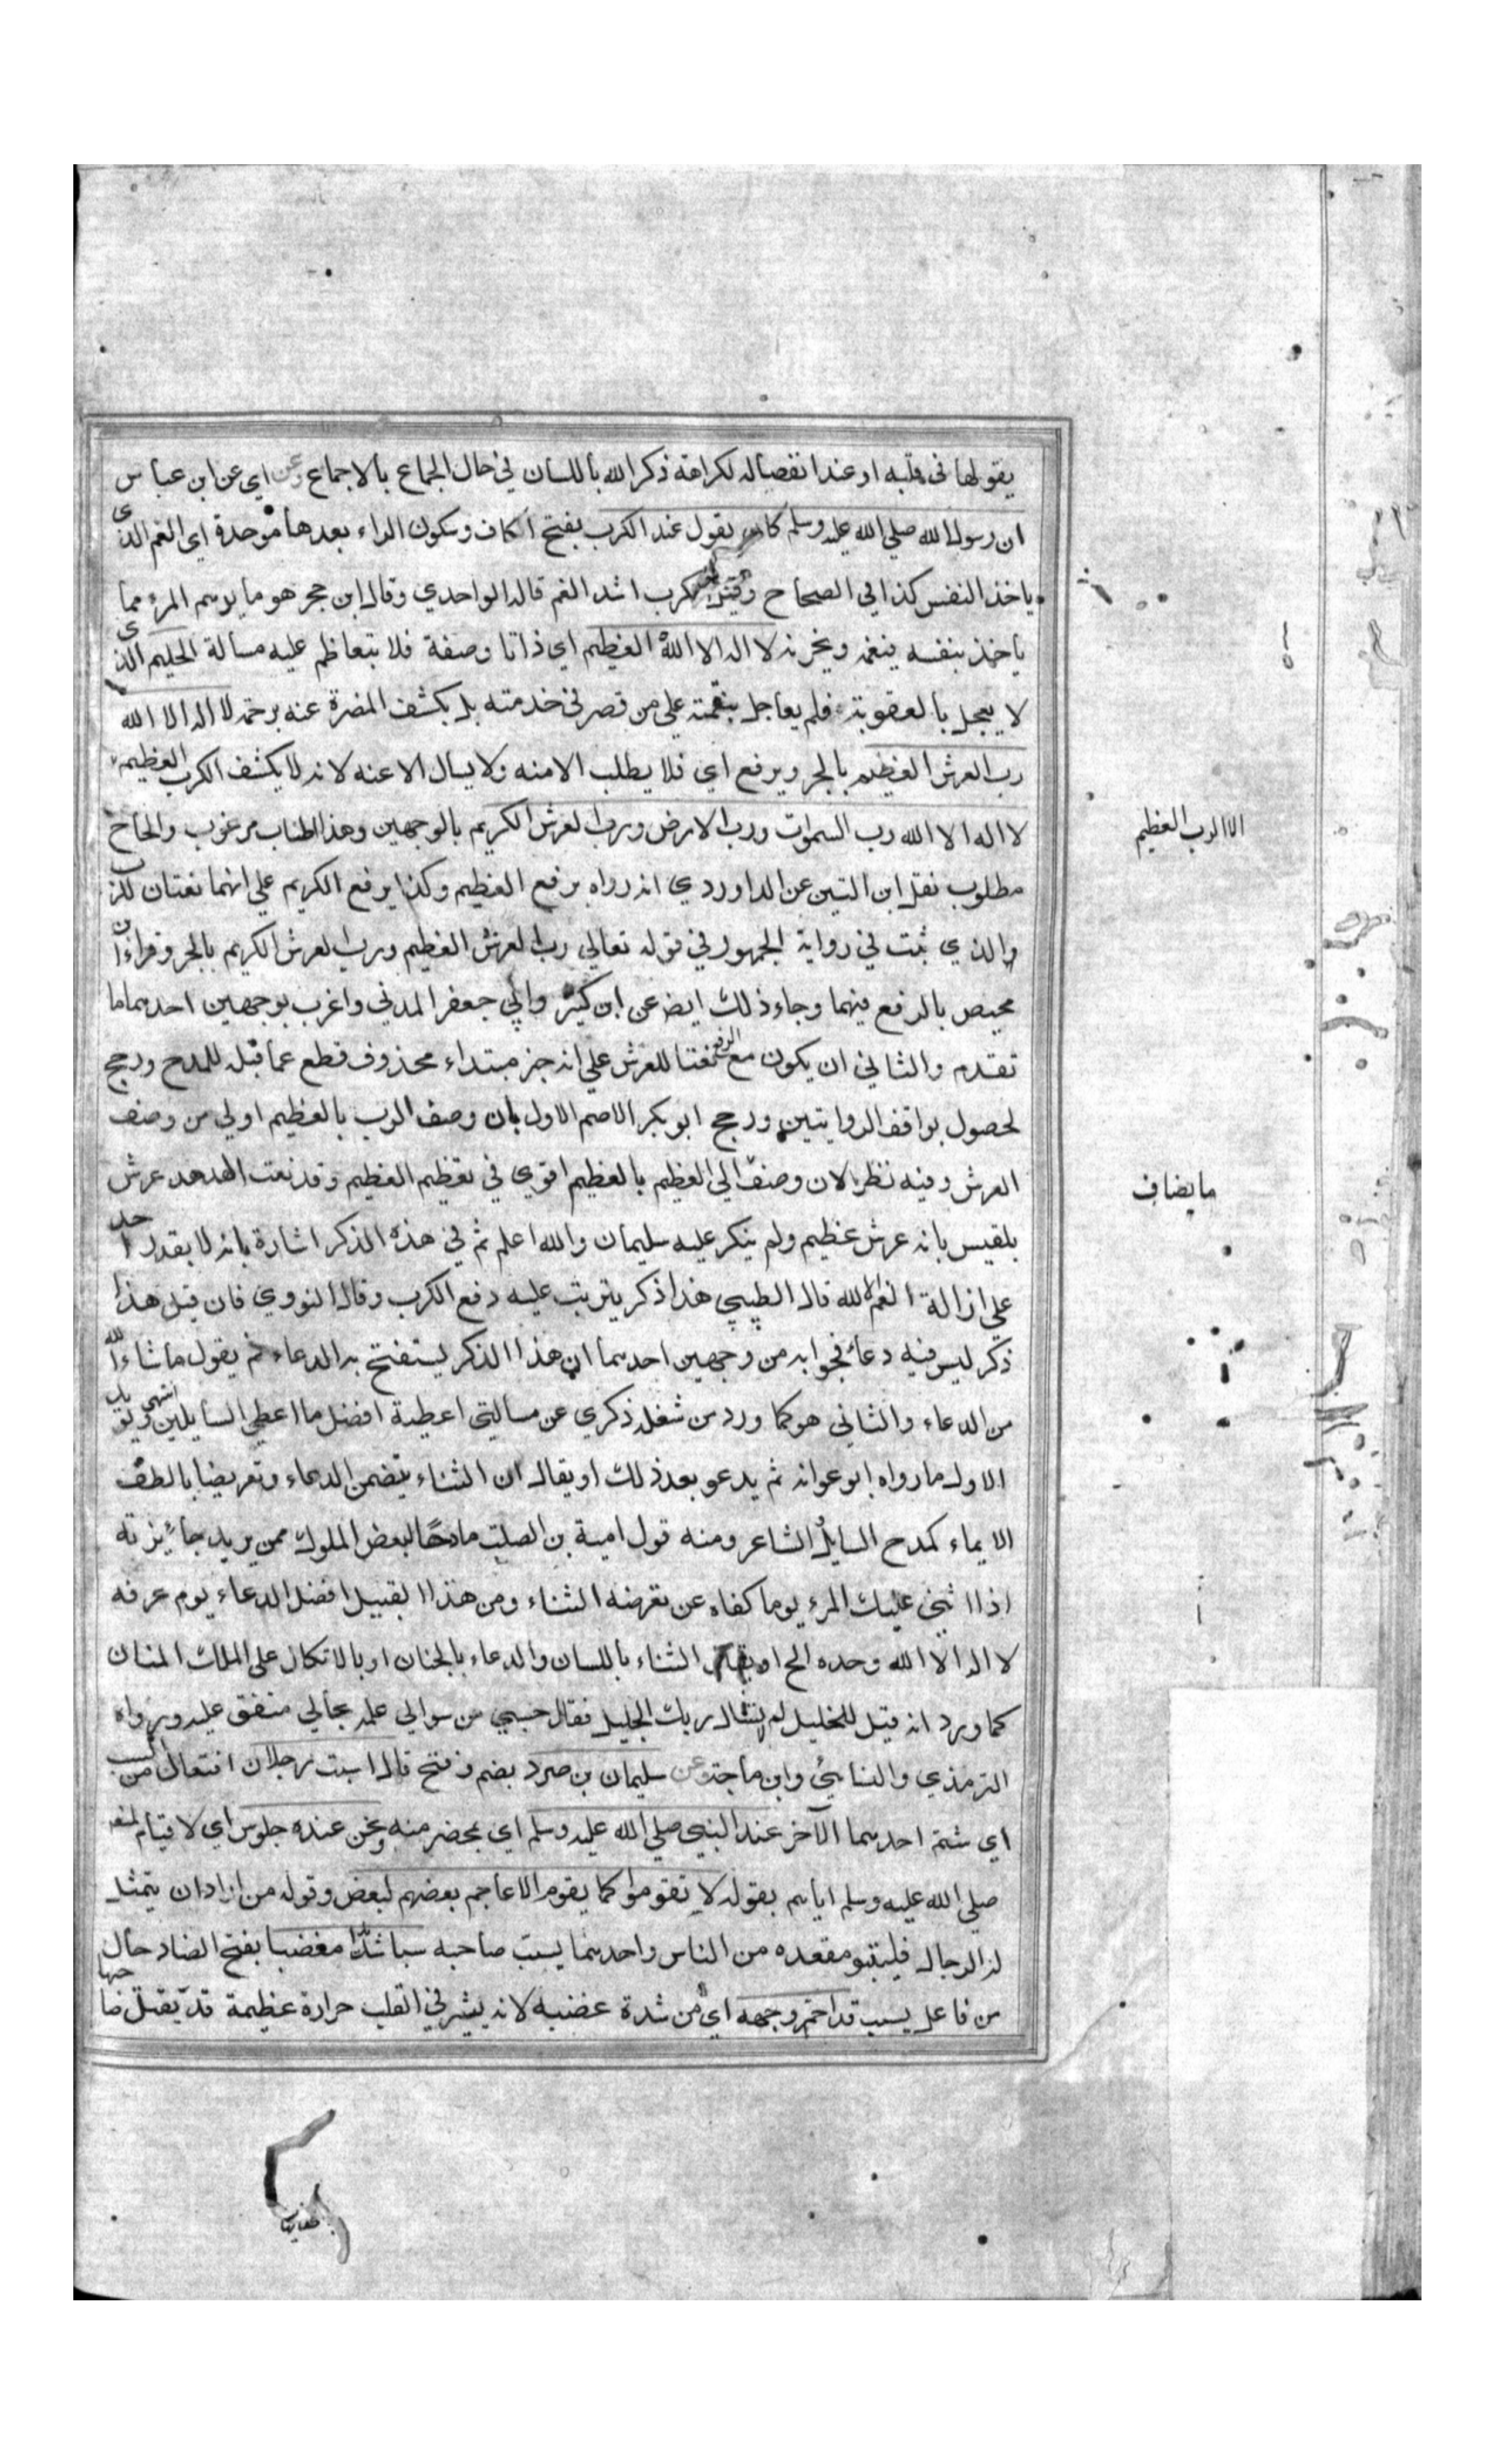 يقولها في قلبه او عند انفصاله لكراهة ذكر الله باللسان في حال الجماع بالاجماع وعن اي عن ابن عباس
ان رسول الله صلي الله عليه وسلم كان يقول عند الكرب بفتح الكاف وسكون الراء بعدها موحدة اي الغم الذي
ياخذ النفس كذا في الصحاح وقيل الكرب اشد الغم قاله الواحدي وقال ابن حجر هو ما يوسم المرء مما
ياخذ بنفسه فيغمه ويحزنه لا اله الا الله العظيم اي ذاتا وصفة فلا يتعاظم عليه مسالة الحليم الذي
لا يعجل بالعقوبة فلم يعاجل بنقمته علي من قصر في خدمته بل يكشف المضرة عنه برحمته لا اله الا الله
رب العرش العظيم بالجر ويرفع اي فلا يطلب الا منه ولا يسال الا عنه لانه لا يكشف الكرب العظيم
الا الرب العظيم
لا اله الا الله رب السموات ورب الارض ورب العرش الكريم بالوجهين وهذا اطناب مرغوب والحاح
مطلوب نقل ابن التين عن الداوردي انه رواه برفع العظيم وكذا برفع الكريم علي انهما نعتان للرب
والذي ثبت في رواية الجمهور في قوله تعالي رب العرش العظيم ورب العرش الكريم بالجر وقراء ابن
محيصن بالرفع فيهما وجاء ذلك ايضا عن ابن كثير وابي جعفر المدني واعرب بوجهين احدهما ما
تقدم والثاني ان يكون مع الرفع نعتا للعرش علي انه خبر مبتداء محذوف قطع عما قبله للمدح ورجح
لحصول توافق الروايتين ورجح ابو بكر الاصم الاول بان وصف الرب بالعظيم اولي من وصف
العرش وفيه نظر لان وصف الي العظيم بالعظيم اقوي في تعظيم العظيم وقد نعت الهدهد عرش
ما يضاف
بلقيس بانه عرش عظيم ولم ينكر عليه سليمان والله اعلم ثم في هذه الذكر اشارة بانه لا يقدر احد
علي ازالة الغم الا الله قال الطيبي هذا ذكر يترتب عليه دفع الكرب وقال النووي فان قيل هذا
ذكر ليس فيه دعاء فجوابه من وجهين احدهما ان هذا الذكر يستفتح به الدعاء ثم يقول ما شاء الله
من الدعاء والثاني هو كما ورد من شغله ذكري عن مسالتي اعطيته افضل ما اعطي السايلين انتهي ويؤيد
الاول ما رواه ابو عوانه ثم يدعو بعد ذلك او يقال ان الثناء يتضمن الدعاء وتعريضا بالطف
الايماء كمدح السايل الشاعر ومنه قول امية بن الصلت مادحا لبعض الملوك ممن يريد جائيزته
اذا اثني عليك المرء يوما كفاه عن تعرضه الثناء ومن هذا القبيل افضل الدعاء يوم عرفه
لا اله الا الله وحده الخ او يقال الثناء باللسان والدعاء بالجنان او بالاتكال علي الملك المنان
كما ورد انه قيل للخليل لم لا تسال ربك الجليل فقال حسبي من سوالي علمه بحالي متفق عليه ورواه
الترمذي والنسائي وابن ماجة وعن سليمان بن صرد بضم ففتح قال استب رجلان افتعال من السب
اي شتم احدهما الآخر عند النبي صلي الله عليه وسلم اي بمحضر منه ونحن عنده جلوس اي لا قيام لمنعه
صلي الله عليه وسلم اياهم بقوله لا تقوموا كما يقوم الاعاجم بعضهم لبعض وقوله من اراد ان يتمثل
له الرجال فليتبو مقعده من الناس واحدهما يسب صاحبه سبا شدا مغضبا بفتح الضاد حال
من فاعل يسب قد احمر وجهه اي من شدة غضبه لانه يثير في القلب حرارة عظيمة قد يقتل صاحبها